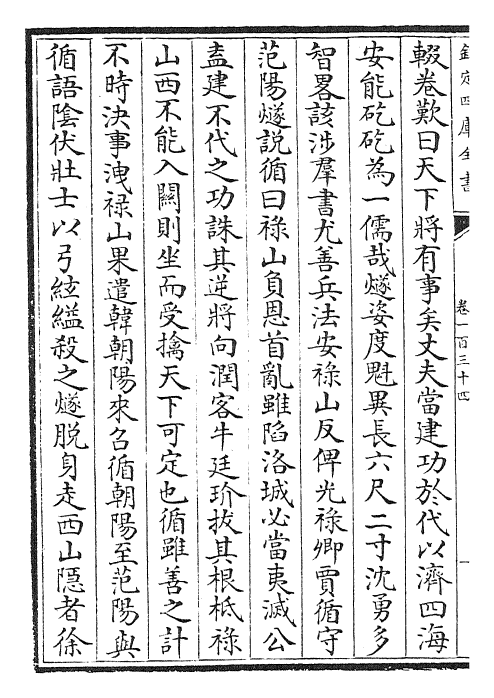 欽定四庫全書
卷一百三十四
輟卷歎曰天下將有事矣丈夫當建功於代以濟四海
安能矻矻為一儒哉燧姿度魁異長六尺二寸沈勇多
智畧該涉羣書尤善兵法安祿山反俾光祿卿賈循守
范陽燧說循曰祿山負恩首亂雖陷洛城必當夷滅公
盍建不代之功誅其逆將向潤客牛廷玠拔其根柢祿
山西不能入關則坐而受擒天下可定也循雖善之計
不時決事洩祿山果遣韓朝陽來召循朝陽至范陽與
循語陰伏壯士以弓絃縊殺之燧脫身走西山隱者徐